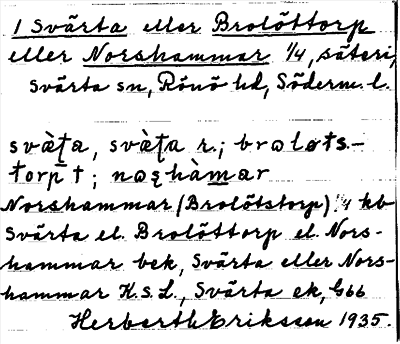 1 Svärta eller Brolöttorp
eller Norshammar 1/4, säteri,
Svärta sn, Rönö hd, Söderm. l.
svὰʈa, svὰʈa r.; broløts-
torp †; noʂhàmar
Norshammar (Brolötstorp) 1/4 kb
Svärta el. Brolöttorp el. Nors-
hammar bek, Svärta eller Nors-
hammar K.S.L., Svärta ek, G66
Herberth Eriksson 1935.